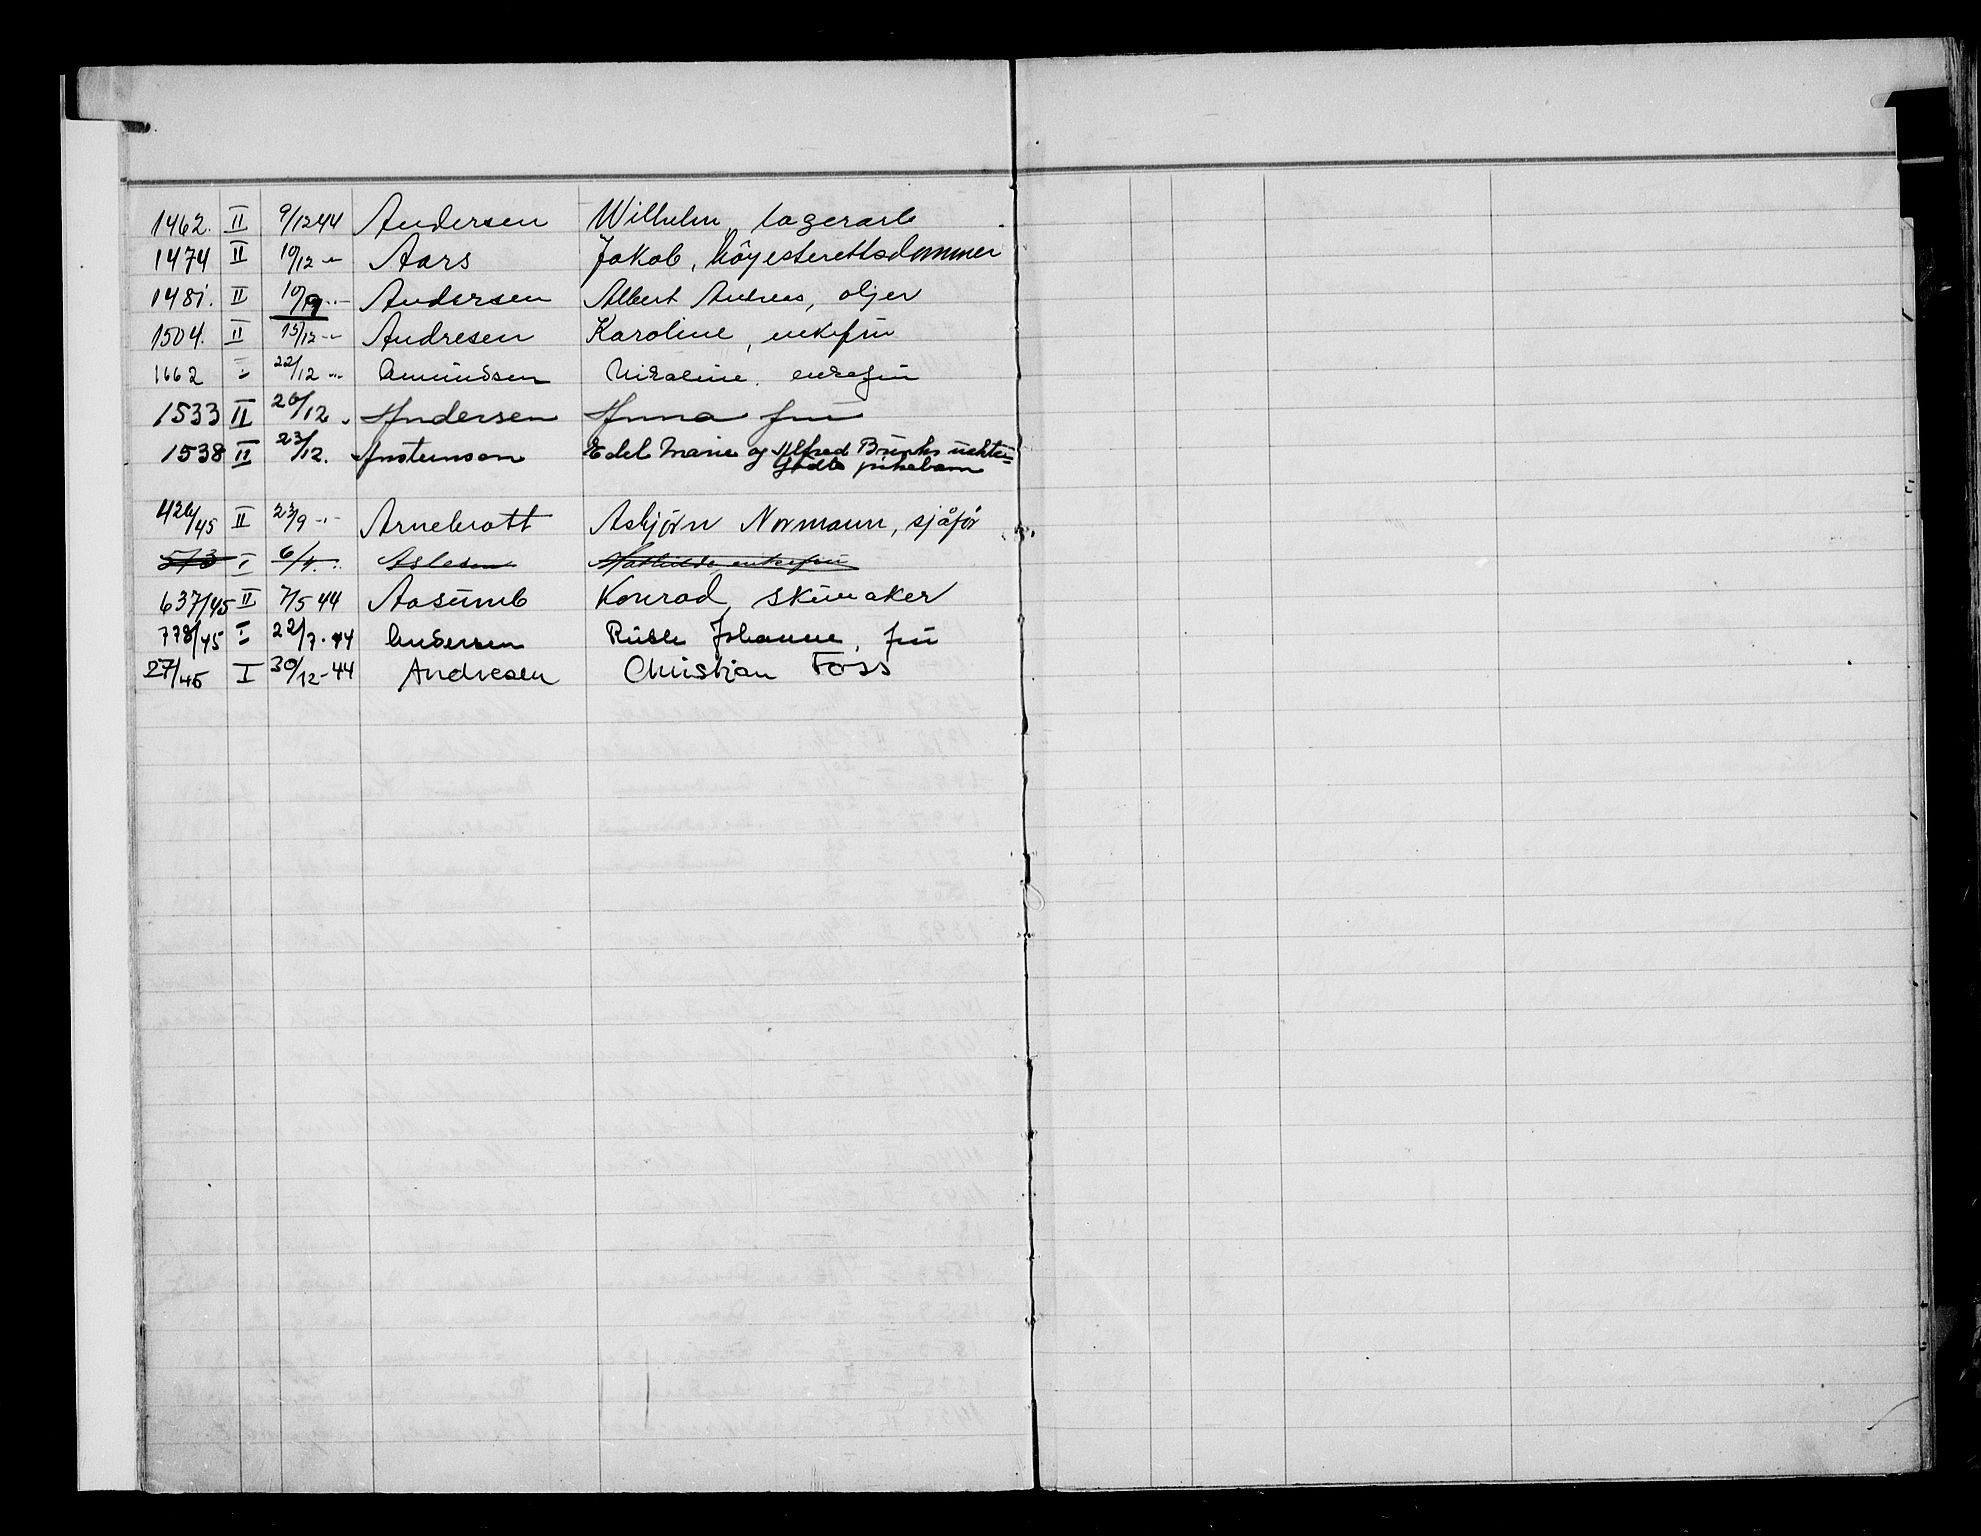 1462. II 9/12 44 Andersen Wilhelm, lagerarb.
1474 II 10/12 -"- Aars Jakob, höyesterettsdommer
1481. II 10/9 -"- Andersen Albert Andreas, oljer
1504. II 15/12 -"- Andresen Karoline, enkefru
1662 I 22/12 -"- Amundsen enkefru
1533 II 20/12 " Andersen Anna fru
1538 II 23/12. Anstensen Edel Marie og Alfred Bruns uekte
födte pikebarn
426/45 II 23/9 -"- Arnebrott Asbjörn Normann, sjåför
573 I 6/4 -"- Aslesen Mathilde, enkefru
637/45 II 7/5 44 Aasumb Konrad, skumaker
778/45 I 22/7. 44 Andersen Ruth Johanne, fru
27/45 I 30/12-44 Andresen Christian Foss